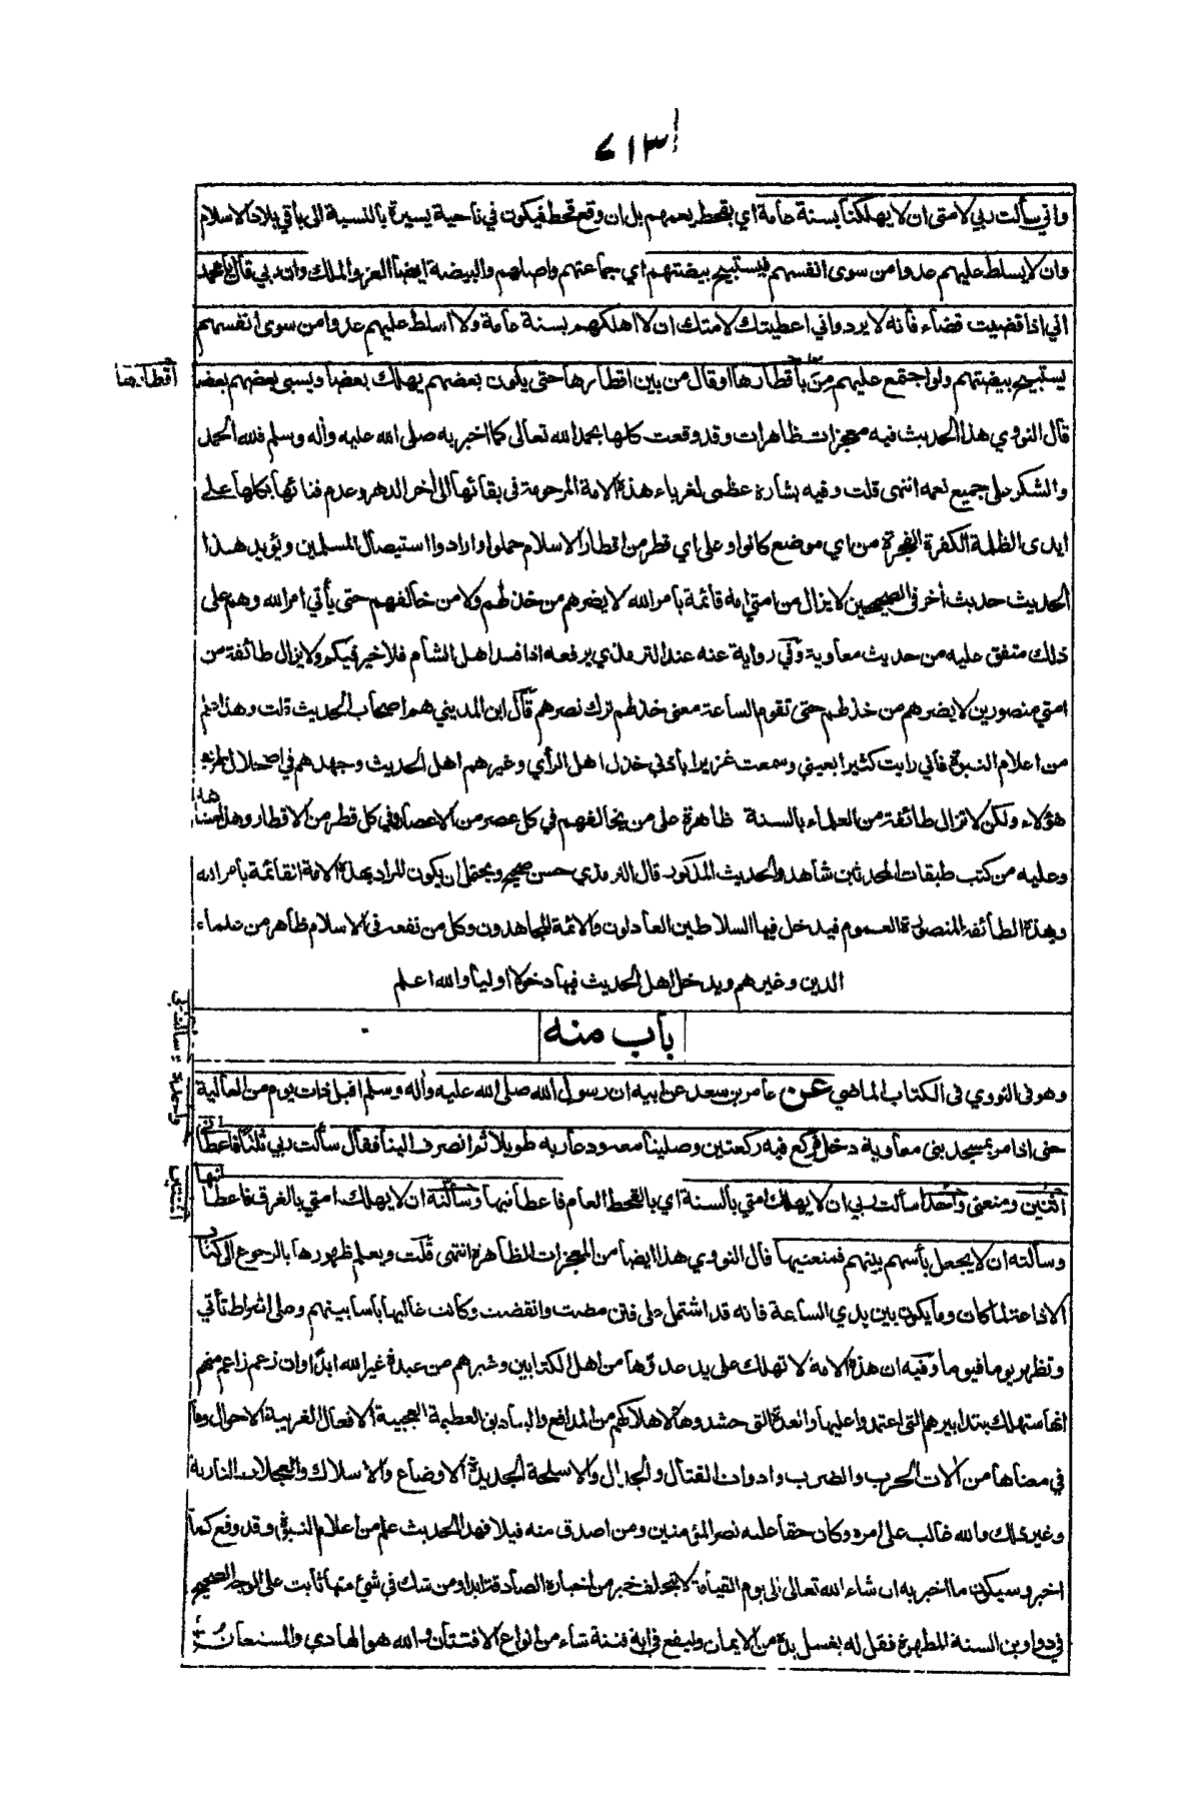 ٦١٣
واني سألت ربي لامتي ان لا يهلكنا بسنة عامة اي بقحط يعمهم بل ان وقع قحط فيكون في ناحية يسيرة بالنسبة الى باقي بلاد الاسلام
وان لا يسلط عليهم عدوا من سوى انفسهم فيستبيح بيضتهم اي جماعتهم واصلهم والبيضة ايضا العز والملك وان ربي قال يا محمد
اني اذا قضيت قضاء فانه لا يرد واني اعطيتك لامتك ان لا اهلكهم بسنة عامة ولا اسلط عليهم عدوا من سوى انفسهم
يستبيح بيضتهم ولو اجتمع عليهم من باقطارها او قال من بين اقطارها حتى يكون بعضهم يهلك بعضا ويسبي بعضهم بعضا
اقطارها
قال النووي هذا الحديث فيه معجزات ظاهرات وقد وقعت كلها بحمد الله تعالى كما اخبر به صلى الله عليه وأله وسلم فلله الحمد
والشكر على جميع نعمه انتهى قلت وفيه بشارة عظمى لغرباء هذة الامة المرحومة في بقائها الى أخر الدهر وعدم فنائها بكلها على
ايدى الظلمة الكفرة الفجرة من اي موضع كانوا وعلى اي قطر من اقطار الاسلام حملوا وارادوا استيصال المسلمين ويؤيد هذا
الحديث حديث أخر في الصحيحين لا يزال من امتي امة قائمة بامر الله لا يضرهم من خذلهم ولا من خالفهم حتى يأتي امر الله وهم على
ذلك متفق عليه من حديث معاوية وفي رواية عنه عند الترمذي يرفعه اذا فسد اهل الشام فلا خير فيكم ولا يزال طائفة من
امتي منصورين لا يضرهم من خذلهم حتى تقوم الساعة معنى خذلهم ترك نصرهم قال ابن المديني هم اصحاب الحديث قلت وهذا علم
من اعلام النبوة فاني رايت كثيرا بعيني وسمعت غزيرا باذني خذل اهل الرأي وغيرهم اهل الحديث وجهدهم في اضمحلال
هؤلاء ولكن لا تزال طائفة من العلماء بالسنة ظاهرة على من يخالفهم في كل عصر من الاعصار وفي كل قطر من الاقطار وهلم
وعليه من كتب طبقات المحدثين شاهد والحديث المذكور قال الترمذي حسن صحيح ويحتمل ان يكون المراد بهذة الامة القائمة بامر الله
وبهذة الطائفة المنصورة العموم فيدخل فيها السلاطين العادلون والائمة المجاهدون وكل من نفعه في الاسلام ظاهر من علماء
الدين وغيرهم ويدخل اهل الحديث فيها دخولا اوليا والله اعلم
باب منه
وهو في النووي في الكتاب الماضي عن عامر بن سعد عن ابيه ان رسول الله صلى الله عليه وأله وسلم اقبل ذات يوم من العالية
حتى اذا مر بمسجد بني معاوية دخل فركع فيه ركعتين وصلينا معه ودعا ربه طويلا ثم انصرف الينا فقال سألت ربي ثلثا فاعطا
اثنتين ومنعني واحدة سألت ربي ان لا يهلك امتي بالسنة اي بالقحط العام فاعطانيها وسألته ان لا يهلك امتي بالغرق فاعطا
نيها
وسألته ان لا يجعل بأسهم بينهم فمنعنيها قال النووي هذا ايضا من المعجزات الظاهرة انتهى قلت ويعلم ظهورها بالرجوع الى كتاب
الاذاعة لما كان وما يكون بين يدي الساعة فانه قد اشتمل على فتن مضت وانقضت وكانت غالبها بأسا بينهم وعلى اشراط تأتي
وتظهر يوما فيوما وفيه ان هذة الامة لا تهلك على يد عدوها من اهل الكتابين وغيرهم من عبدة غير الله ابدا وان زعم زاعم منهم
انها ستهلك بتدابيرهم التي اعتمدوا عليها والعدة التي حشدوها لاهلاكهم من المدافع والبنادق العظيمة العجيبة الافعال الغريبة الاحوال وما
في معناها من آلات الحرب والضرب وادوات القتال والجدال والاسلحة الجديدة الاوضاع والاسلاك والعجلات النارية
وغير ذلك والله غالب على امره وكان حقا عليه نصر المؤمنين ومن اصدق منه قيلا فهذا الحديث علم من أعلام النبوة وقد وقع كما
اخبر وسيكون ما اخبر به ان شاء الله تعالى الى يوم القيامة لا يتخلف خبر من اخباره الصادقة ابدا ومن شك في شئ منها ثابت على الوجه الصحيح
في دواوين السنة المطهرة فقل له يغسل يده من الايمان وليقع في اية فتنة شاء من انواع الافتتان والله هو الهادي والمستعان